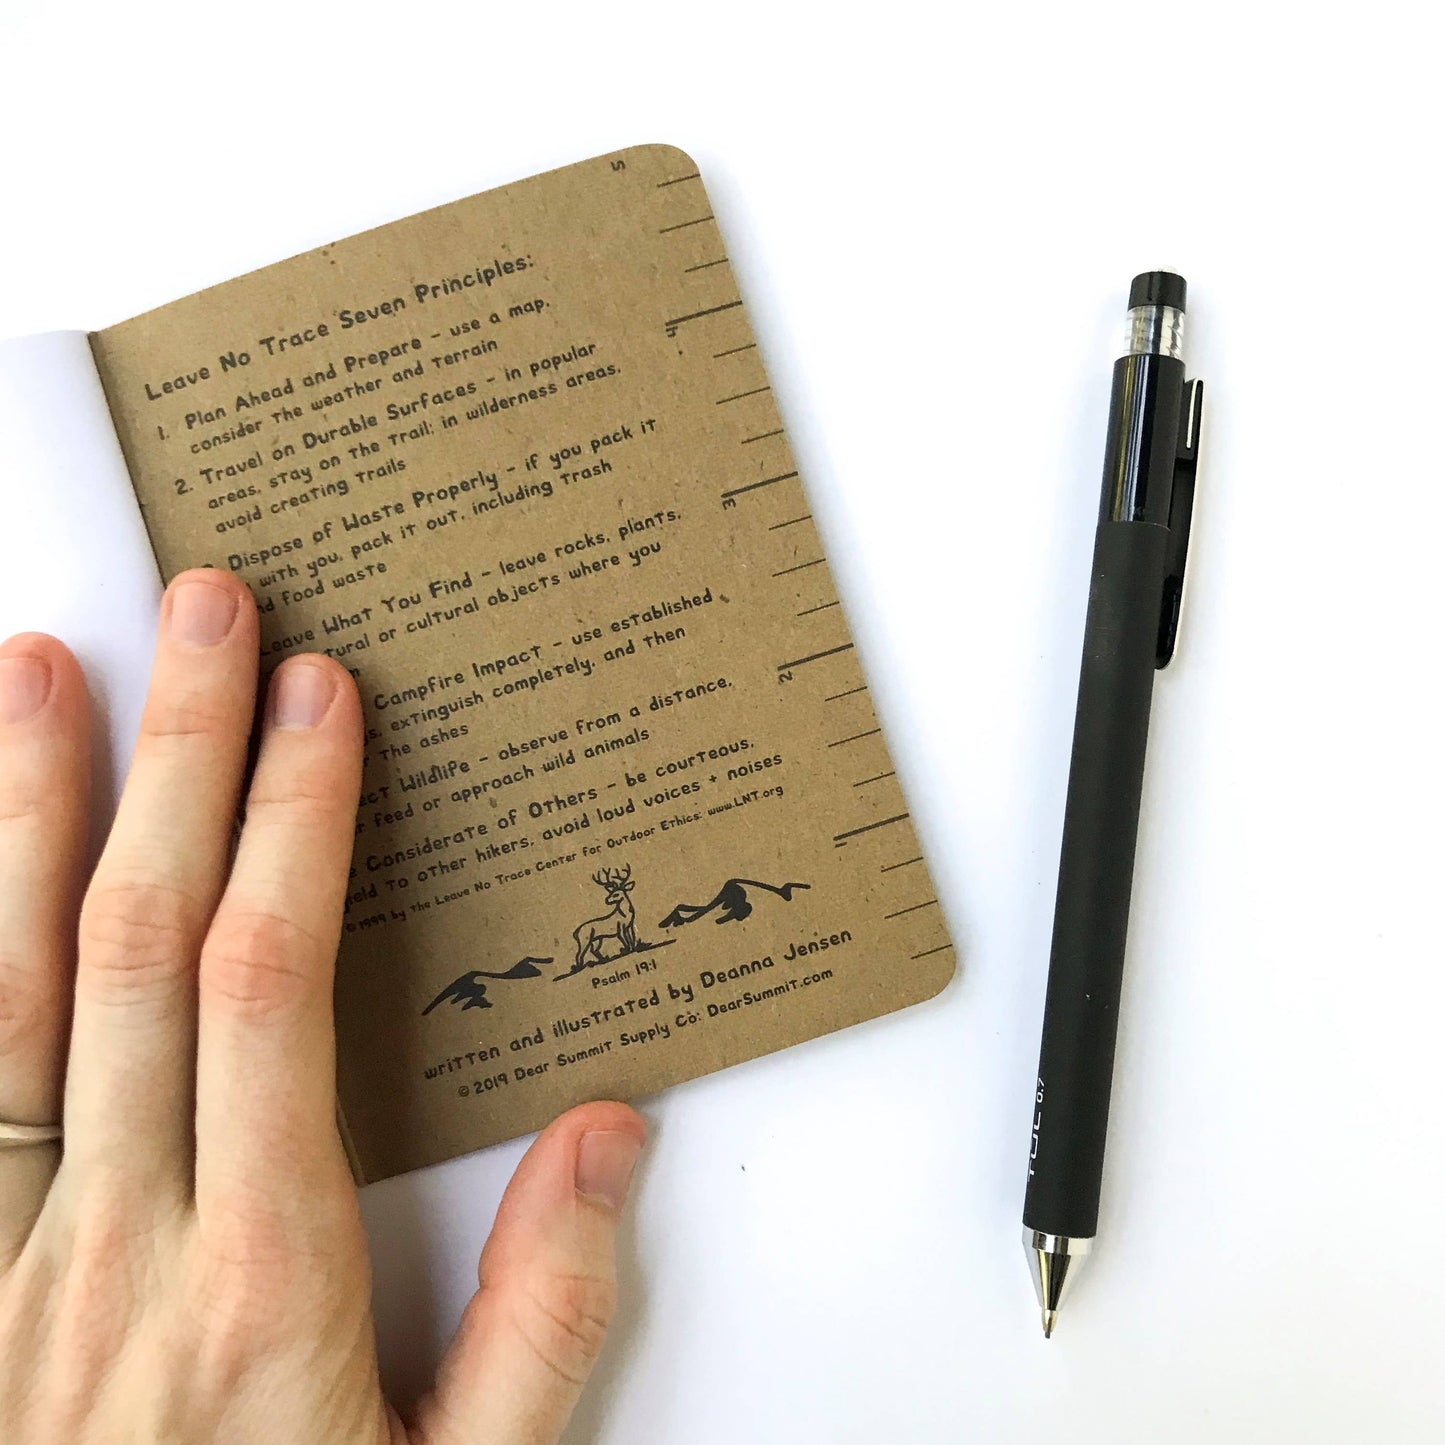 Leave No Trace Seven Principles:
1. Plan Ahead and Prepare - use a map,
consider the weather and terrain
2. Travel on Durable Surfaces - in popular
areas, stay on the trail; in wilderness areas,
avoid creating trails
Dispose of Waste Properly - if you pack it
with you, pack it out, including trash
food waste
Leave What You Find - leave rocks, plants,
or cultural objects where you
Campfire Impact - use established
extinguish completely, and then
the ashes
Wildlife - observe from a distance,
feed or approach wild animals
Considerate of Others - be courteous,
to other hikers, avoid loud voices + noises
© 1999 by the Leave No Trace Center for Outdoor Ethics: www.LNT.org
Psalm 19:1
written and illustrated by Deanna Jensen
© 2019 Dear Summit Supply Co: DearSummit.com
5
4
3
2
1
TUL 0.7